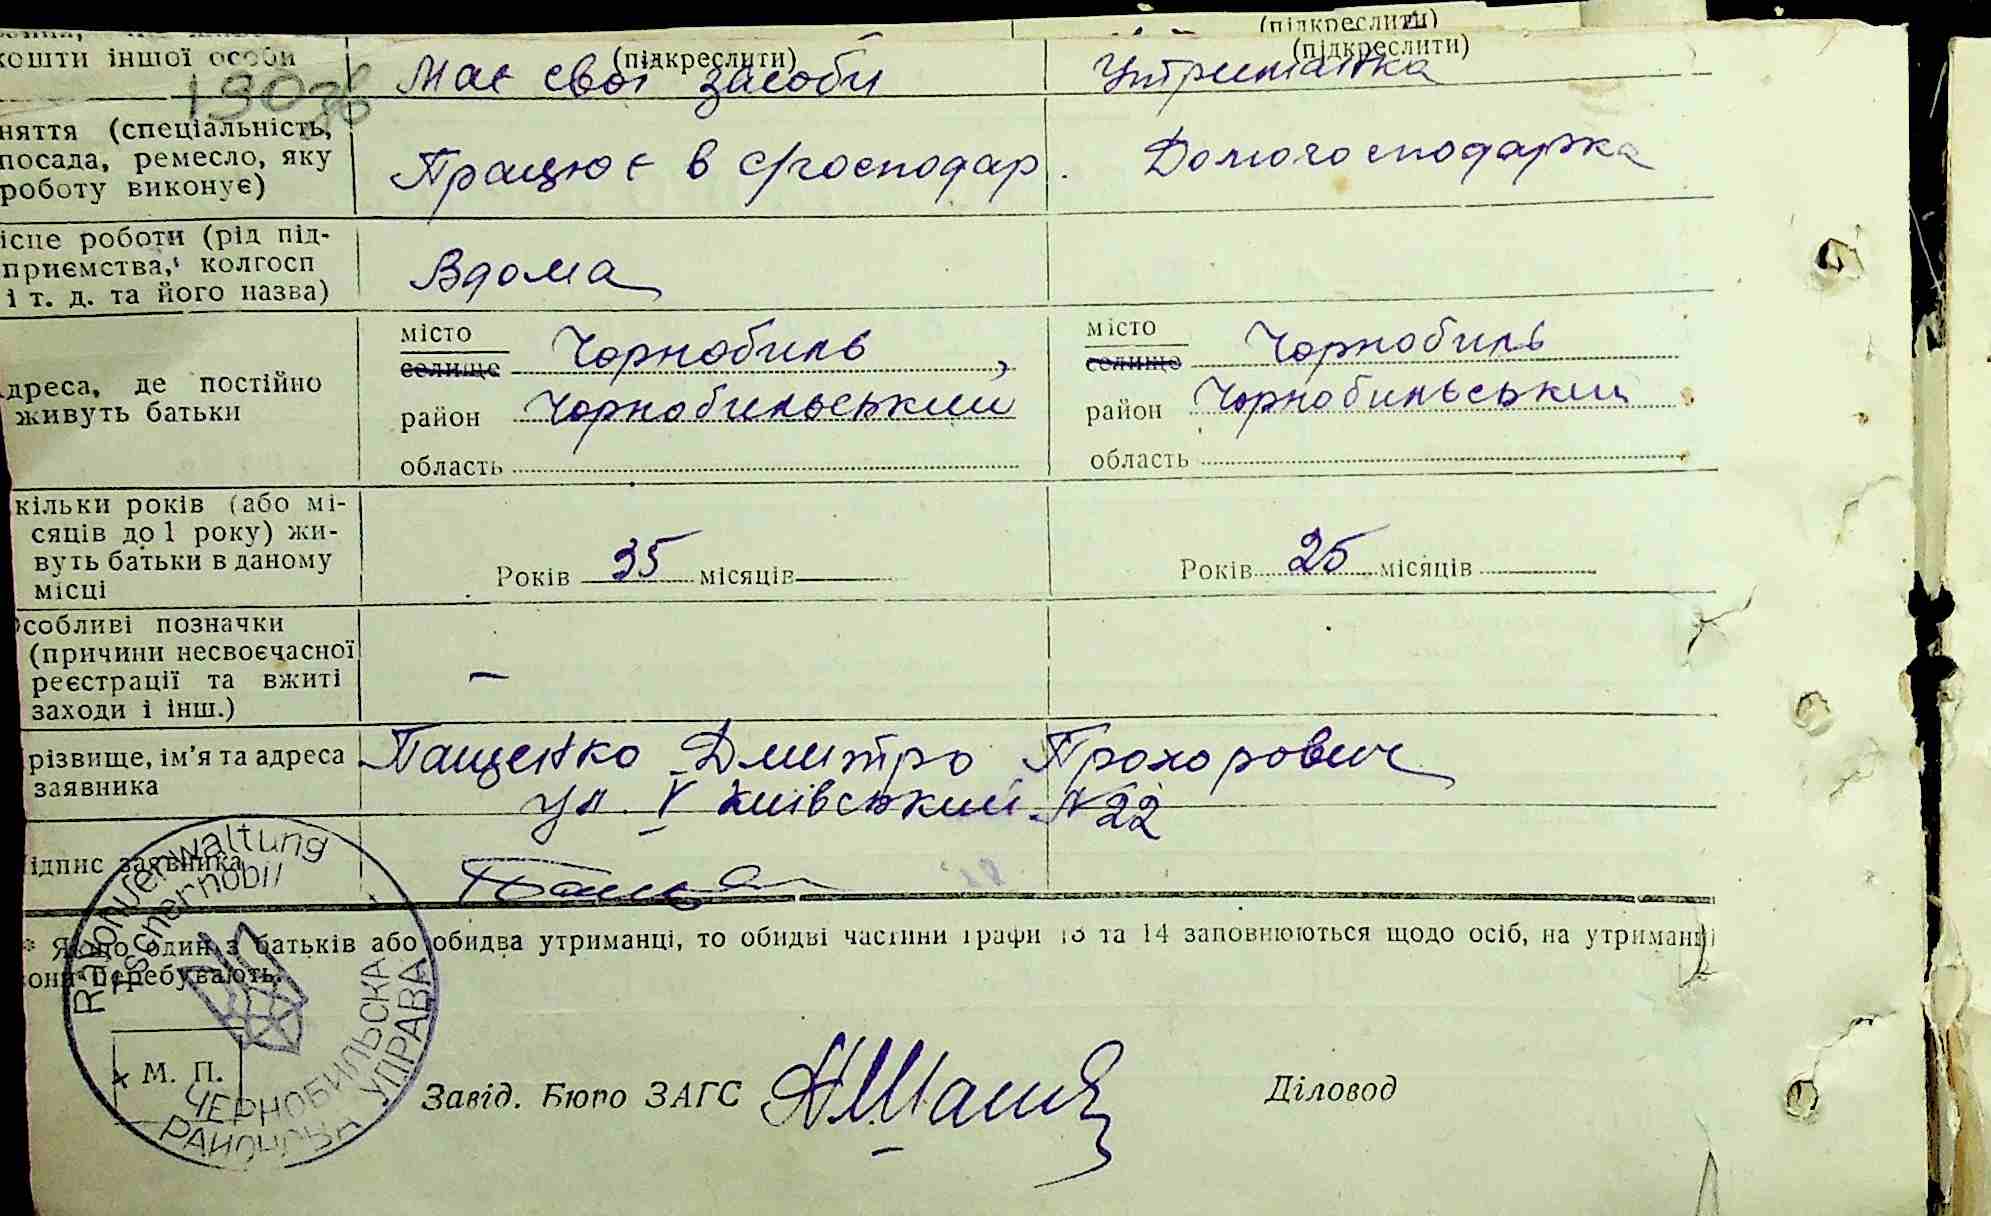 (підкреслити)
кошти іншої особи (підкреслити) (підкреслити)
Має свої засоби Утриманка
няття (спеціальність,
посада, ремесло, яку
роботу виконує)
Працює в с/господар. Домогосподарка
ісце роботи (рід під-
приємства, колгосп
і т. д. та його назва)
Вдома
дреса, де постійно
живуть батьки
місто
селище Чорнобиль,
район Чорнобильський
область
місто
селище Чорнобиль
район Чорнобильський
область
кільки років (або мі-
сяців до 1 року) жи-
вуть батьки в даному
місці
Років 35 місяців
Років 25 місяців
собливі позначки
(причини несвоєчасної
реєстрації та вжиті
заходи і інш.)
—
різвище, ім'я та адреса
заявника
Пащенко Дмитро Прохорович
ул. V Київський N 22
ідпис заявника
* Якщо один з батьків або обидва утриманці, то обидві частини графи 13 та 14 заповнюються щодо осіб, на утриманні
вони перебувають.
Rayonverwaltung
Tschernobil
ЧЕРНОБИЛЬСКА
РАЙОНОВА УПРАВА
М. П.
Завід. Бюро ЗАГС
Діловод